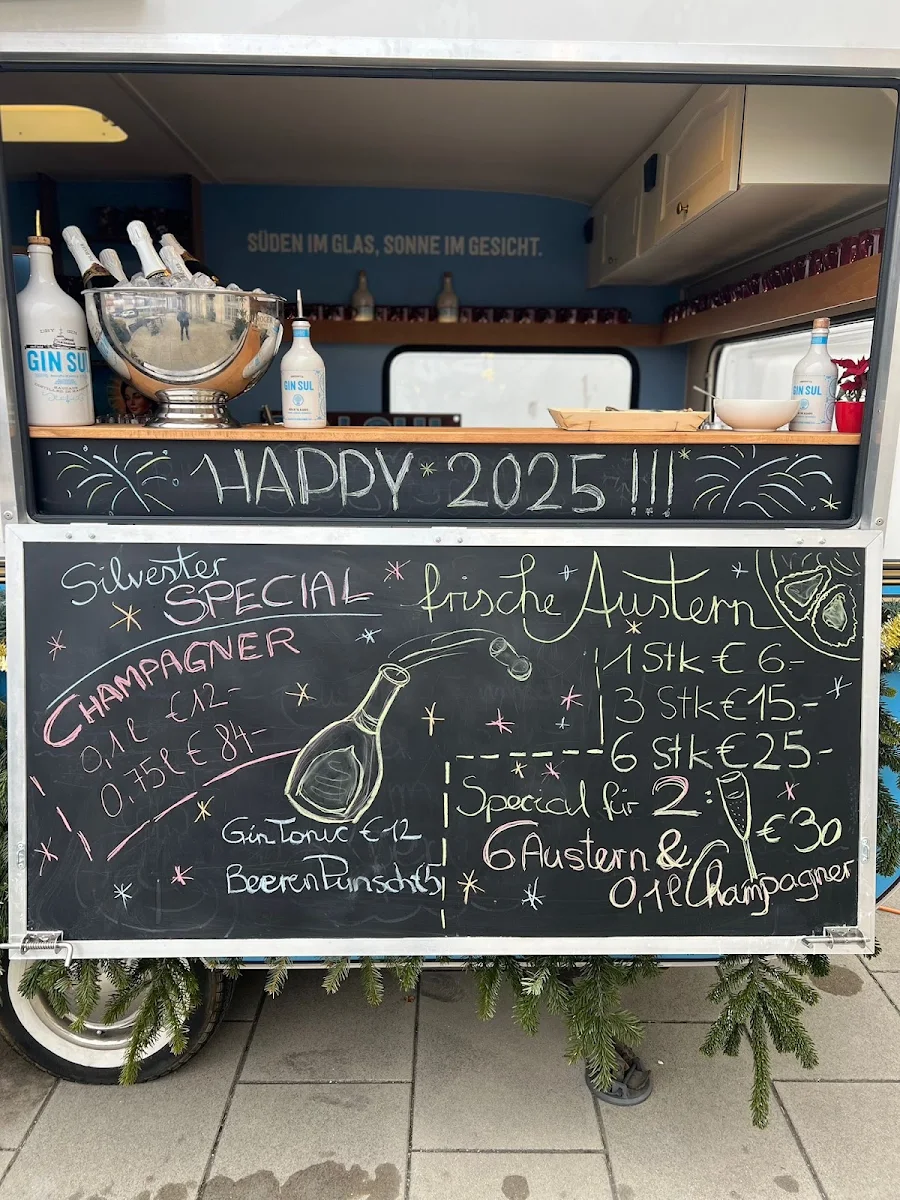 SÜDEN IM GLAS, SONNE IM GESICHT.
GIN SUL
GIN SUL
GIN SUL
HAPPY 2025 !!!
Silvester
SPECIAL
CHAMPAGNER
0,1l €12-
0,75l € 84-
Gin Tonic €12
BeerenPunsch€5
frische Austern
1 Stk € 6.-
3 Stk €15.-
6 Stk €25-
Special für 2:
€30
6 Austern &
0,1l Champagner